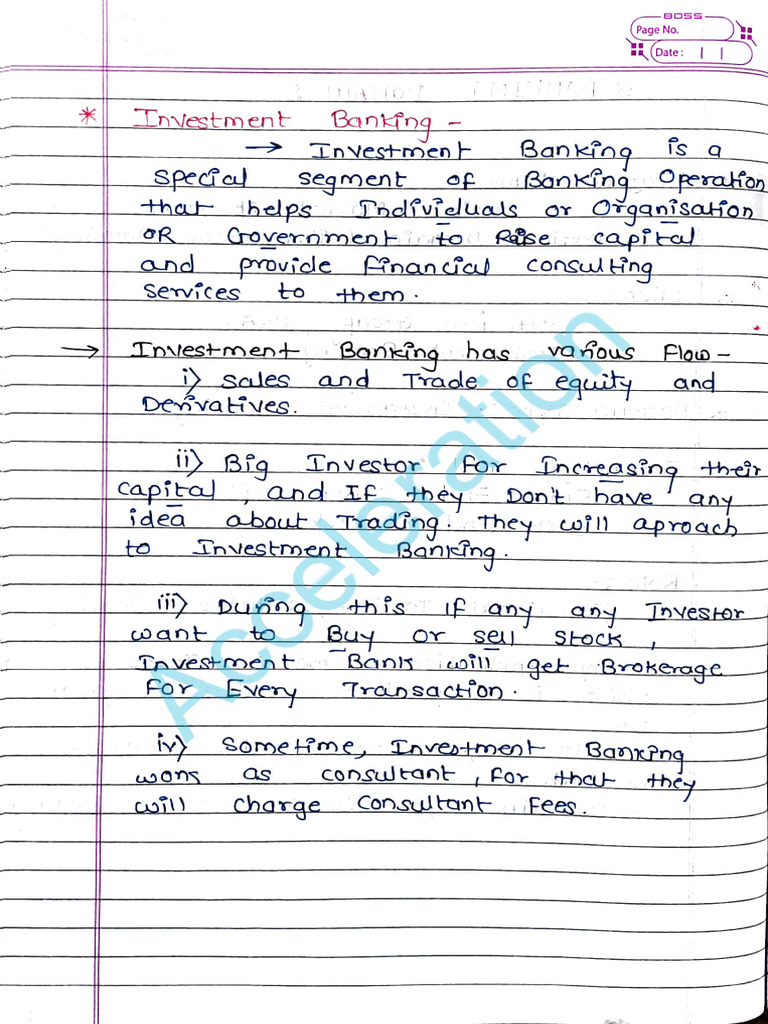 BOSS
Page No.
Date: | |
* Investment Banking -
→ Investment Banking is a
special segment of Banking Operation
that helps Individuals or Organisation
OR Government to Raise capital
and provide financial consulting
services to them.
→ Investment Banking has various Flow-
i) sales and Trade of equity and
Derivatives.
ii) Big Investor for Increasing their
capital, and If they Don't have any
idea about Trading. They will aproach
to Investment Banking.
iii) During this if any any Investor
want to Buy or sell stock,
Investment Bank will get Brokerage
for Every Transaction.
iv) sometime, Investment Banking
work as consultant, for that they
will charge consultant fees.
Acceleration